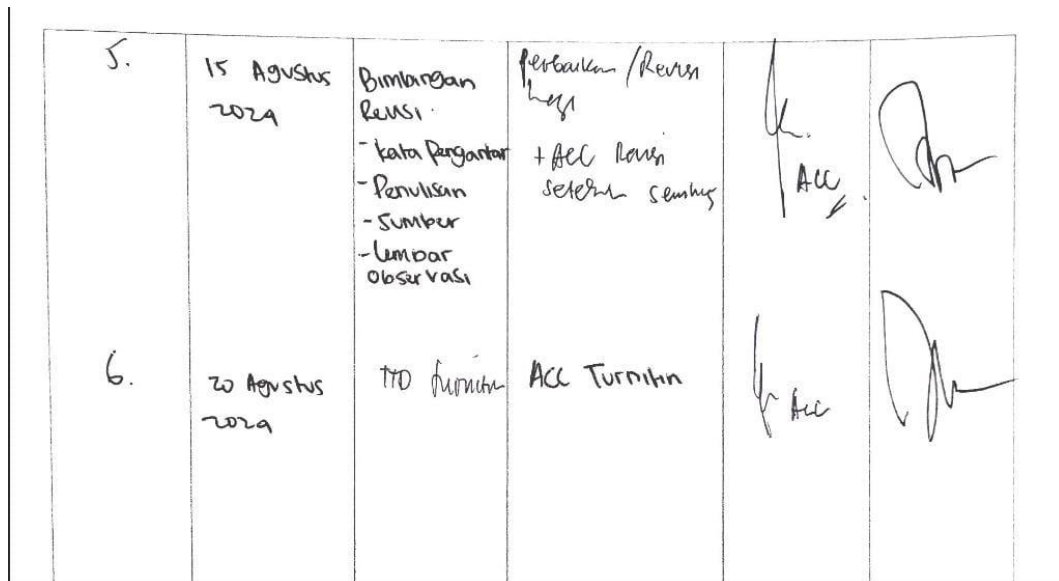 5.
15 Agustus
2024
Bimbingan
Revisi.
- kata Pengantar
- Penulisan
- Sumber
- Lembar
Observasi
Perbaikan / Revisi
+ ACC Revisi
setelah
ACC
6.
20 Agustus
2024
TTD Turnitin
ACC Turnitin
ACC